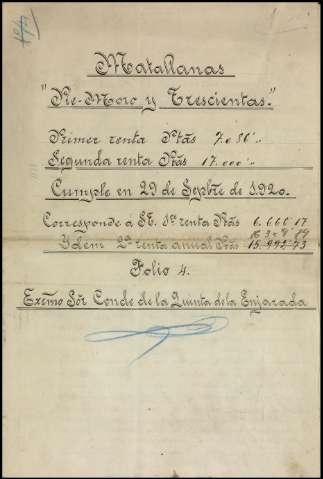 Matallanas
"Pie-Moro y Trescientas."
Primer renta Ptas 7.036 "
Segunda renta Ptas 17.000 "
Cumple en 29 de Septbre de 1920.
Corresponde á St. 1ª renta Ptas 6.660 17
16
Ydem 2ª renta anual Ptas 15.992=73
Folio 4.
Exsmo Sór Conde de la Quinta de la Enjarada